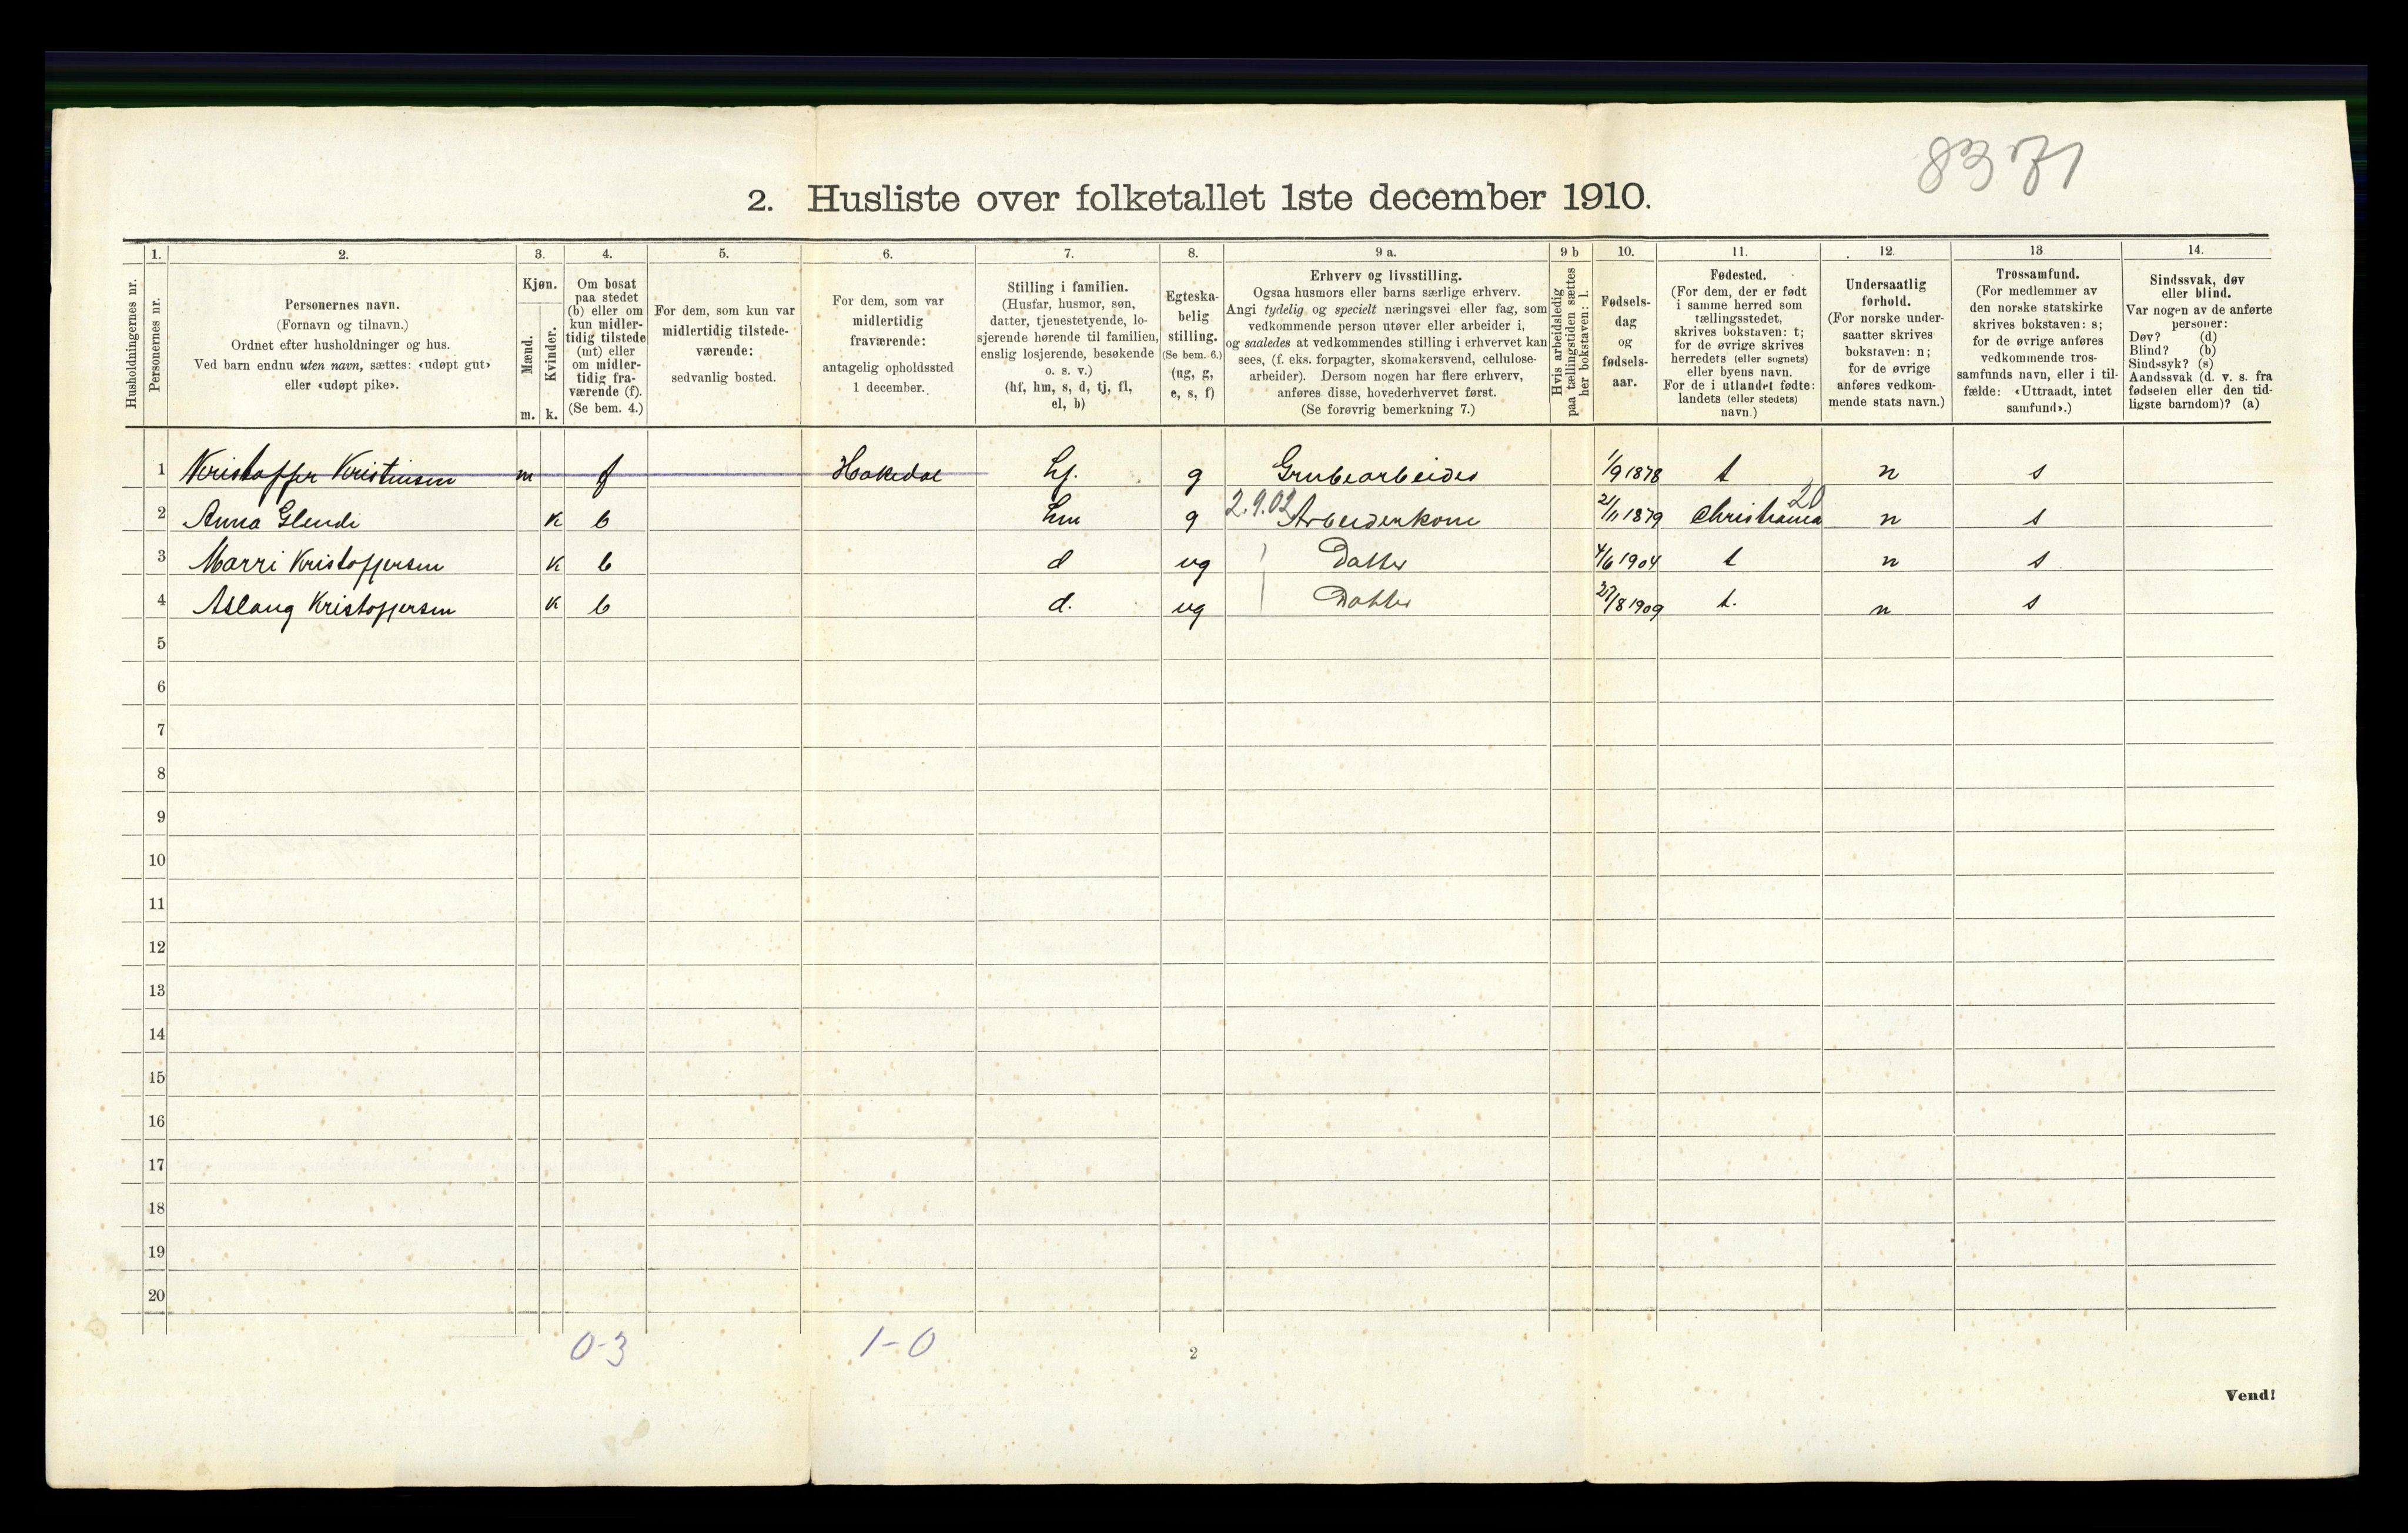 8371
2. Husliste over folketallet 1ste december 1910.
Husholdningernes nr.
1.
Personernes nr.
2.
Personernes navn.
(Fornavn og tilnavn.)
Ordnet efter husholdninger og hus.
Ved barn endnu uten navn, sættes: «udøpt gut»
eller «udøpt pike».
3.
Kjøn.
Mænd.
Kvinder.
m. k.
4.
Om bosat
paa stedet
(b) eller om
kun midler-
tidig tilstede
(mt) eller
om midler-
tidig fra-
værende (f).
(Se bem. 4.)
5.
For dem, som kun var
midlertidig tilstede-
værende:
sedvanlig bosted.
6.
For dem, som var
midlertidig
fraværende:
antagelig opholdssted
1 december.
7.
Stilling i familien.
(Husfar, husmor, søn,
datter, tjenestetyende, lo-
sjerende hørende til familien,
enslig losjerende, besøkende
o. s. v.)
(hf, hm, s, d, tj, fl,
el, b)
8.
Egteska-
belig
stilling.
(Se bem. 6.)
(ug, g,
e, s, f)
9 a.
Erhverv og livsstilling.
Ogsaa husmors eller barns særlige erhverv.
Angi tydelig og specielt næringsvei eller fag, som
vedkommende person utøver eller arbeider i,
og saaledes at vedkommendes stilling i erhvervet kan
sees, (f. eks. forpagter, skomakersvend, cellulose-
arbeider). Dersom nogen har flere erhverv,
anføres disse, hovederhvervet først.
(Se forøvrig bemerkning 7.)
9 b
Hvis arbeidsledig
paa tællingstiden sættes
her bokstaven: l.
10.
Fødsels-
dag
og
fødsels-
aar.
11.
Fødested.
(For dem, der er født
i samme herred som
tællingsstedet,
skrives bokstaven: t;
for de øvrige skrives
herredets (eller sognets)
eller byens navn.
For de i utlandet fødte:
landets (eller stedets)
navn.)
12.
Undersaatlig
forhold.
(For norske under-
saatter skrives
bokstaven: n;
for de øvrige
anføres vedkom-
mende stats navn.)
13
Trossamfund.
(For medlemmer av
den norske statskirke
skrives bokstaven: s;
for de øvrige anføres
vedkommende tros-
samfunds navn, eller i til-
fælde: «Uttraadt, intet
samfund».)
14.
Sindssvak, døv
eller blind.
Var nogen av de anførte
personer:
Døv? (d)
Blind? (b)
Sindssyk? (s)
Aandssvak (d. v. s. fra
fødselen eller den tid-
ligste barndom)? (a)
1 Kristoffer Kristiansen m f Hakedal hf. g Grubearbeider 1/9 1878 t n s
2 Anna Glendi k b hm g 2.9.02 Arbeiderkone 21/11 1879 Christiania 20 n s
3 Marri Kristoffersen k b d ug Datter 4/6 1904 t n s
4 Aslaug Kristoffersen k b d. ug Datter 27/8 1909 t. n s
5
6
7
8
9
10
11
12
13
14
15
16
17
18
19
20
0-3 1-0
2
Vend!